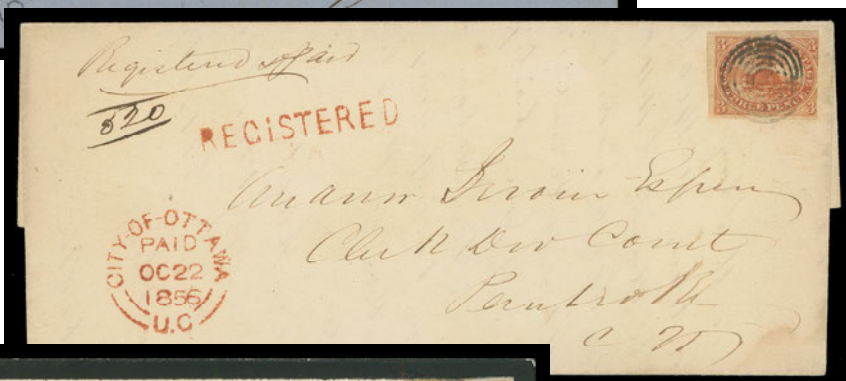 Registered & Paid
520
REGISTERED
3 3
THREE PENCE
3 3
Irwin Esqre
Clerk Div Court
Pembroke
C W
CITY-OF-OTTAWA
PAID
OC 22
1855
U.C